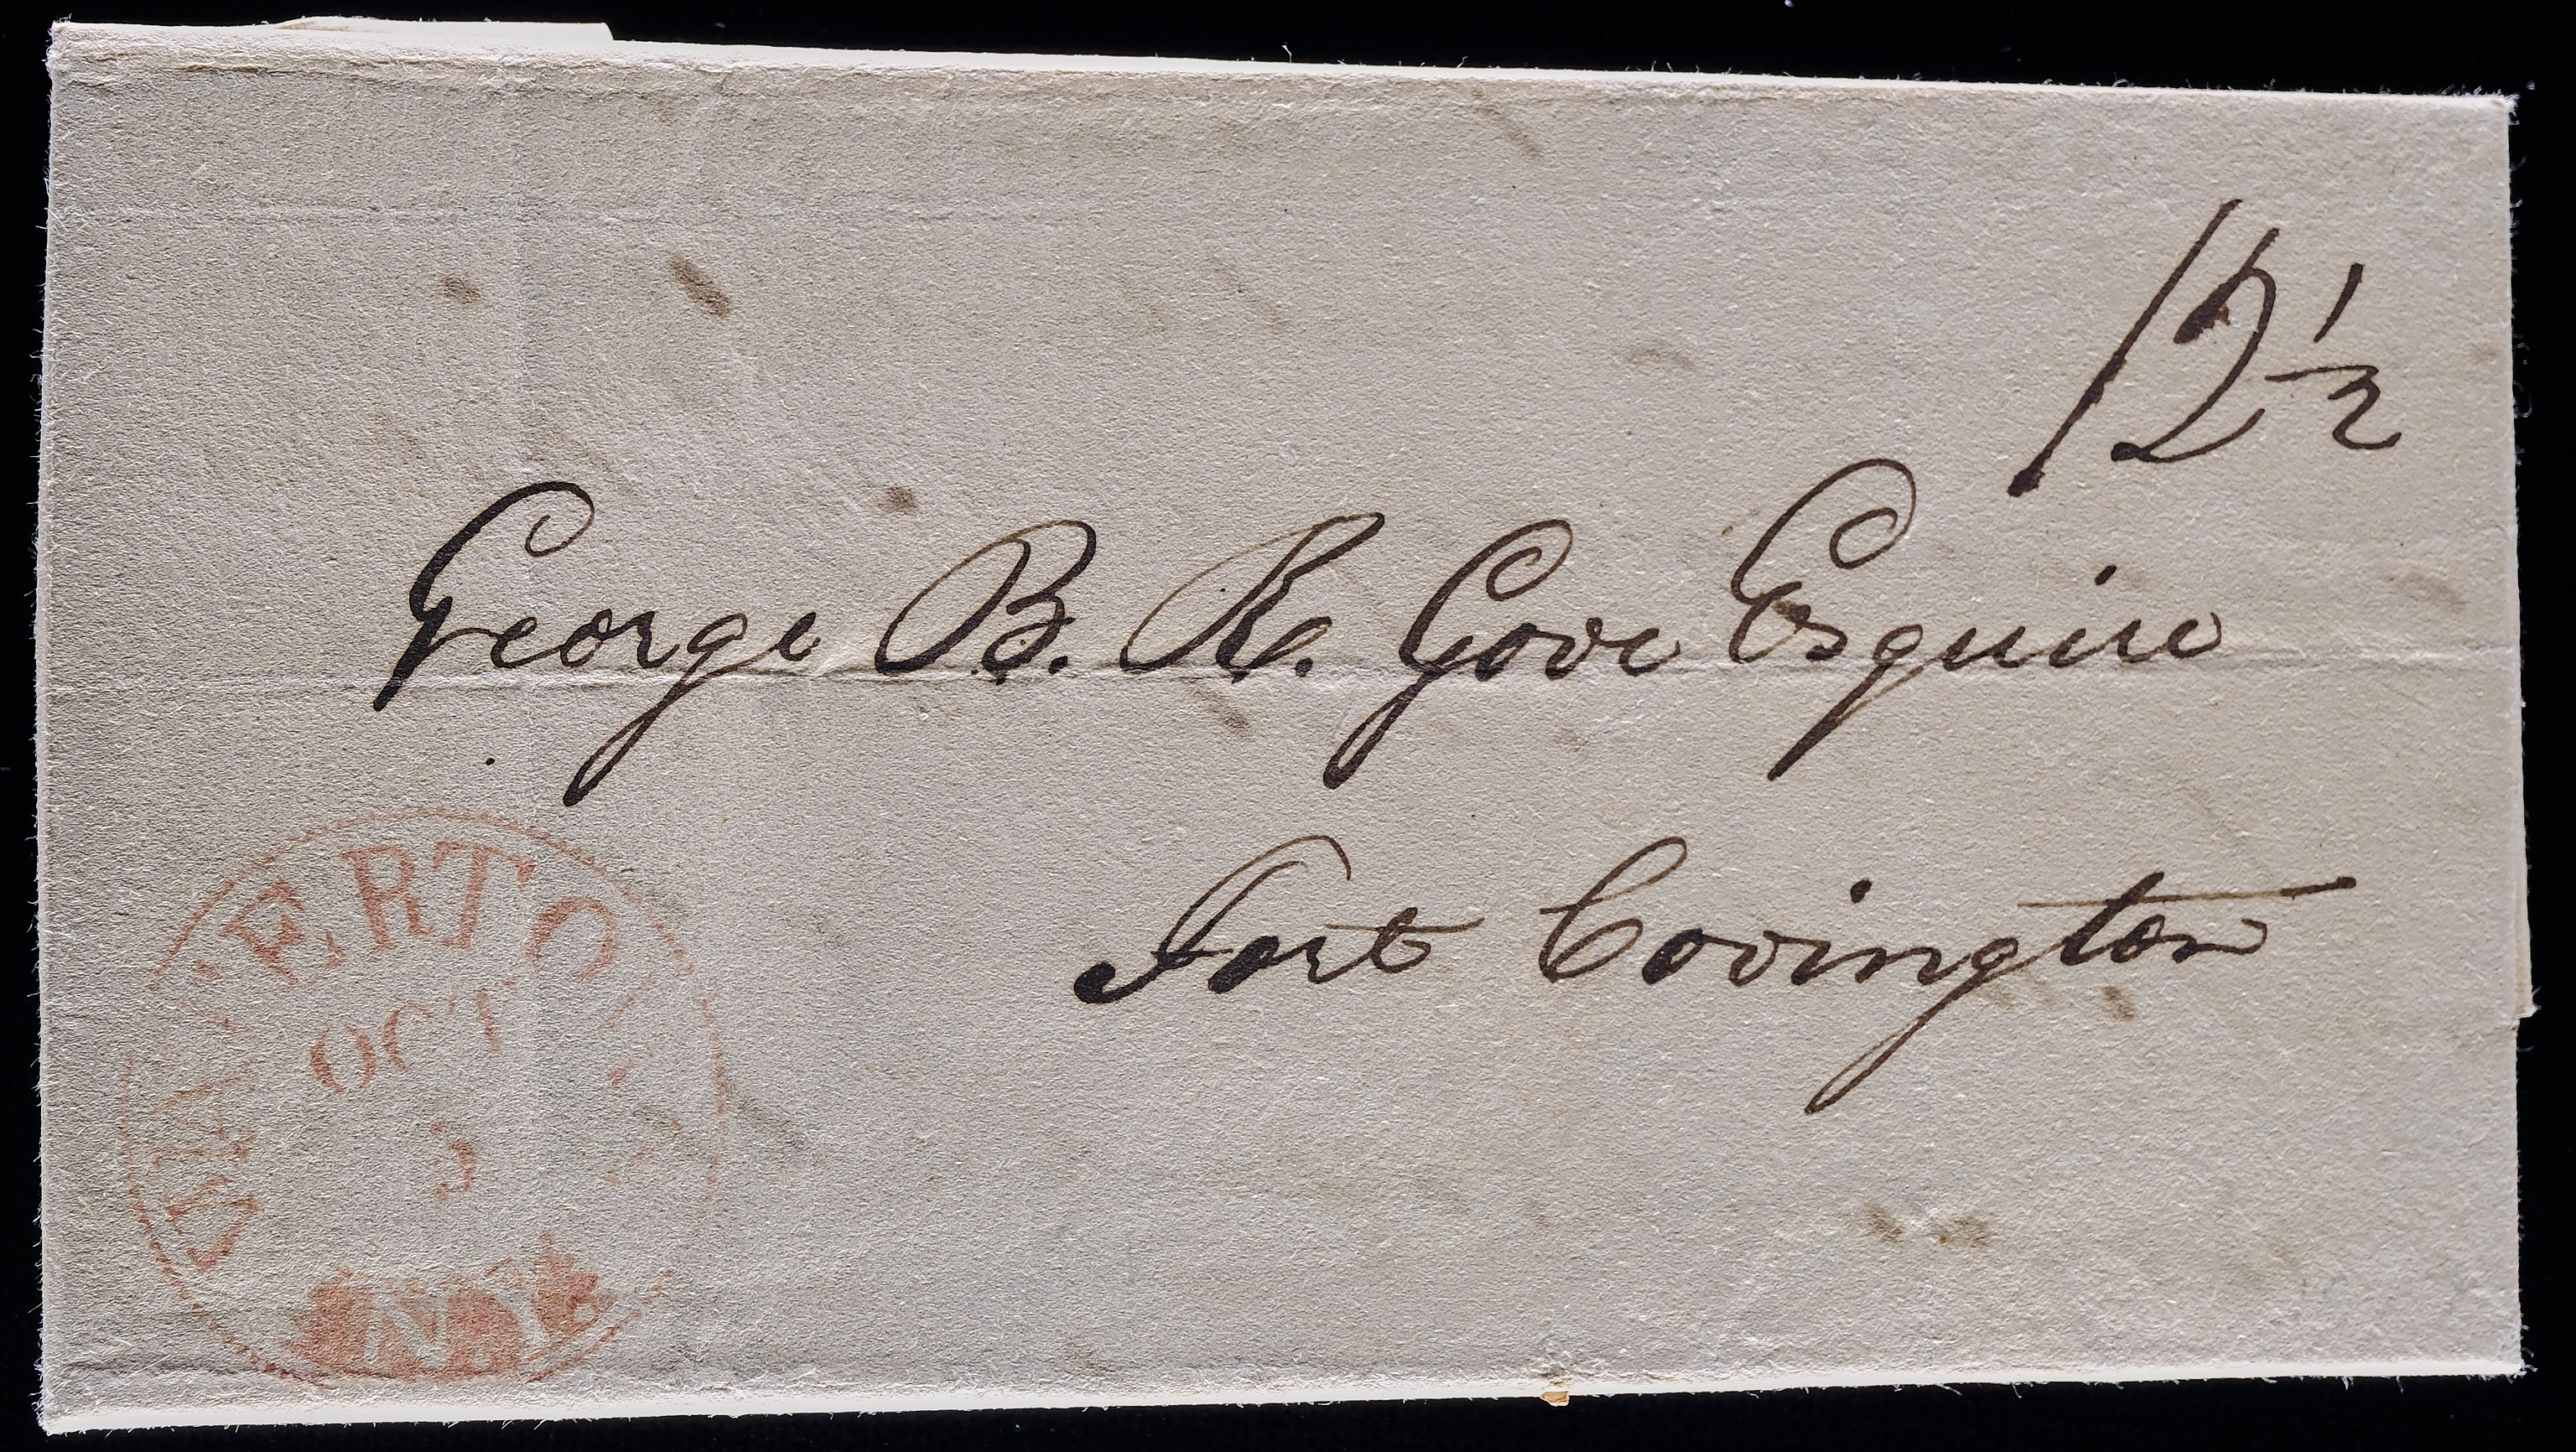 12 1/2
George B. R. Gove Esquire
Fort Covington
OCT
5
N.Y.